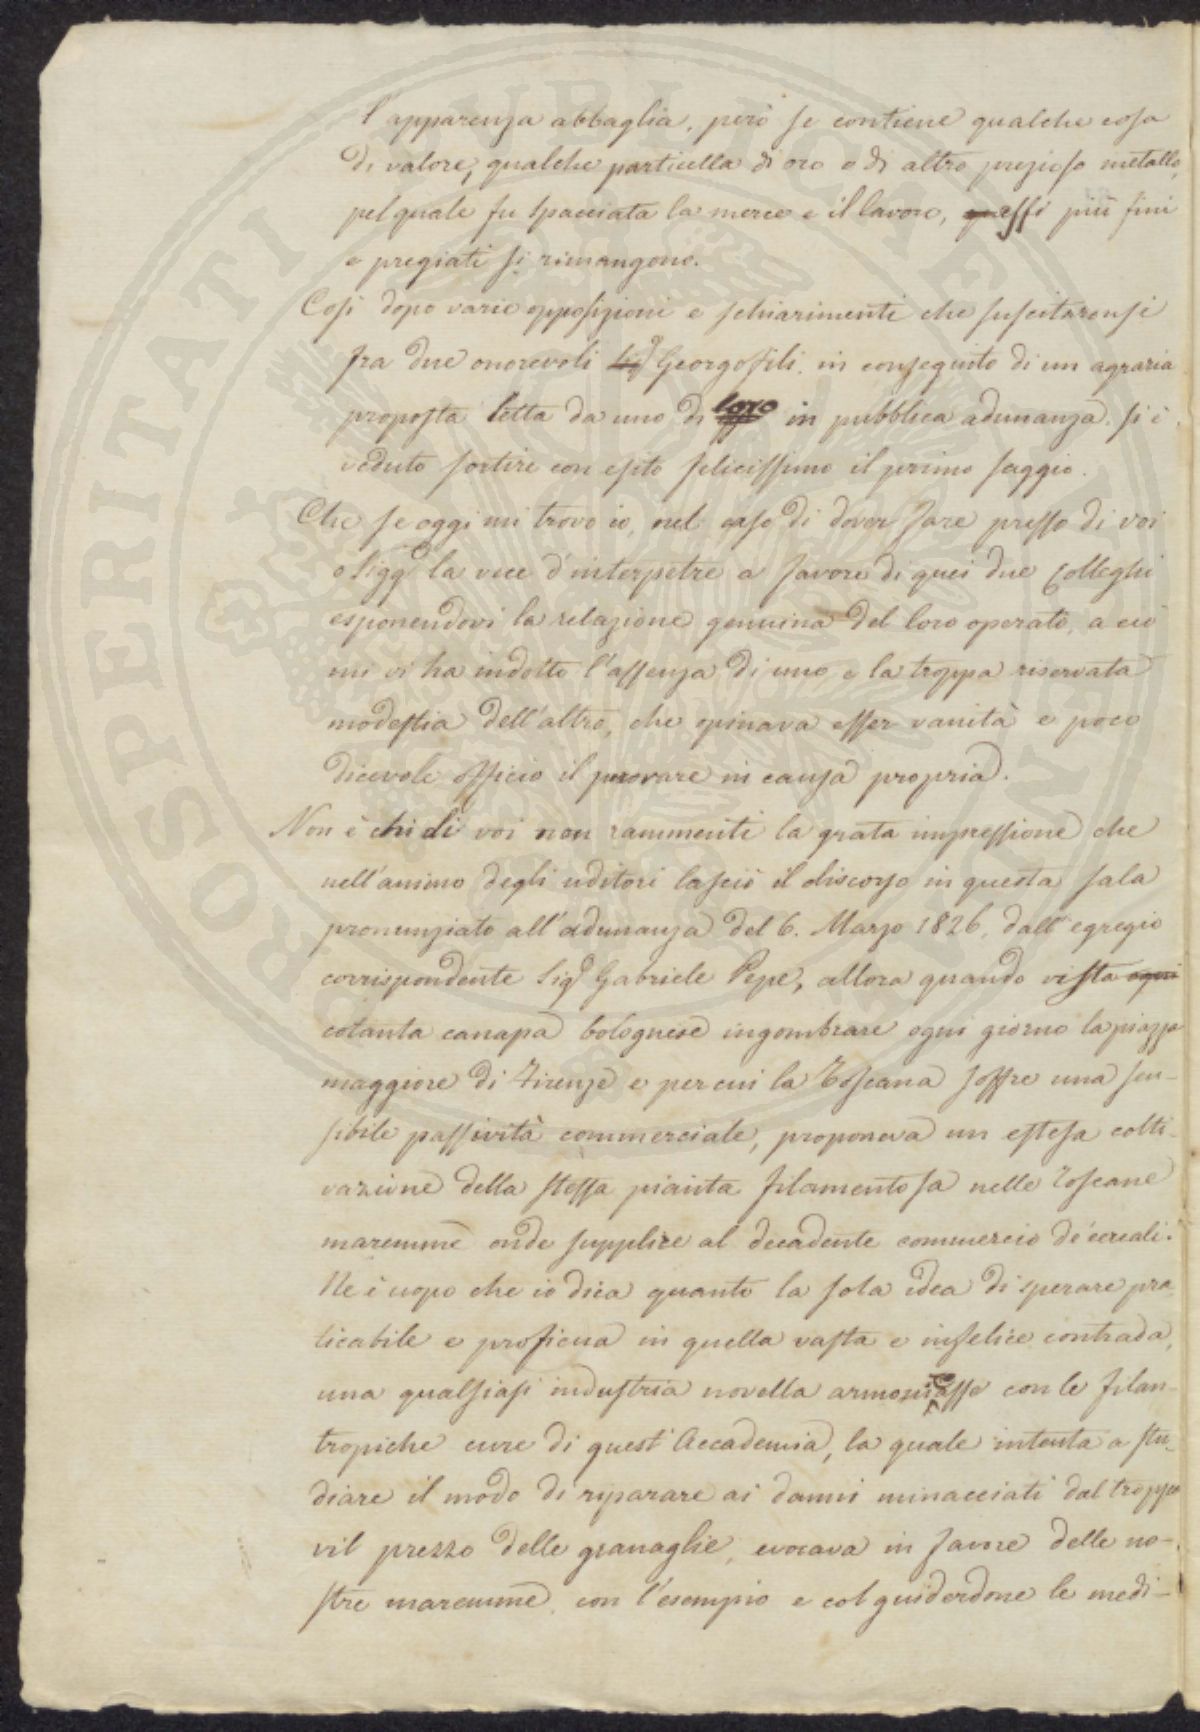 l'apparenza abbaglia, però se contiene qualche cosa
di valore, qualche particella di oro o di altro prezioso metallo,
pel quale fu spacciata la merce e il lavoro, essi più fini
e pregiati si rimangono.
Così dopo varie opposizioni e schiarimenti che suscitaronsi
fra due onorevoli Georgofili, in conseguito di un agraria
proposta letta da uno di loro in pubblica adunanza, si è
veduto sortire con esito felicissimo il primo saggio.
Che se oggi mi trovo io, nel caso di dover fare presso di voi
o Sigg.i la vece d'interpetre a favore di quei due Colleghi
esponendovi la relazione genuina del loro operato, a ciò
mi vi ha indotto l'assenza di uno e la troppa riservata
modestia dell'altro, che opinava esser vanità e poco
dicevole officio il perorare in causa propria.
Non è chi di voi non rammenti la grata impressione che
nell'animo degli uditori lasciò il discorso in questa sala
pronunziato all'adunanza del 6. Marzo 1826, dall'egregio
corrispondente Sig.r Gabriele Pepe, allora quando vista ogni
cotanta canapa bolognese ingombrare ogni giorno la piazza
maggiore di Firenze e per cui la Toscana soffre una sen-
sibile passività commerciale, proponeva un estesa colti-
vazione della stessa pianta filamentosa nelle Toscane
maremme onde supplire al decadente commercio de' cereali.
Ne è uopo che io dica quanto la sola idea di sperare pra-
ticabile e proficua in quella vasta e infelice contrada,
una qualsiasi industria novella armonizzasse con le filan-
tropiche cure di quest'Accademia, la quale intenta a stu-
diare il modo di riparare ai danni minacciati dal troppo
vil prezzo delle granaglie, evocava in favore delle no-
stre maremme, con l'esempio e col guiderdone le medi-
PROSPERITATI PUBLICAE AUGENDAE